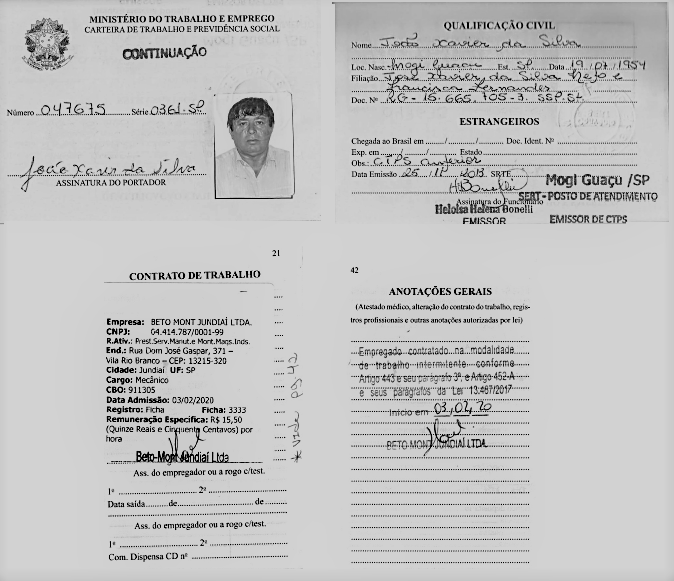 MINISTÉRIO DO TRABALHO E EMPREGO
CARTEIRA DE TRABALHO E PREVIDÊNCIA SOCIAL
CONTINUAÇÃO
Número 047675 Série 0361-SP
João Xavier da Silva
ASSINATURA DO PORTADOR
QUALIFICAÇÃO CIVIL
Nome João Xavier da Silva
Loc. Nasc. Mogi Guaçu Est. SP Data 19/07/1954
Filiação José Xavier da Silva Neto e
Francisca Fernandes
Doc. Nº RG-16.665.705-3 SSP.SP
ESTRANGEIROS
Chegada ao Brasil em ....../....../...... Doc. Ident. Nº
Exp. em ....../....../...... Estado
Obs.: CTPS anterior
Data Emissão 25/ /2013 SRTE
Mogi Guaçu /SP
SERT - POSTO DE ATENDIMENTO
Assinatura do Funcionário
Heloisa Helena Bonelli
EMISSOR
EMISSOR DE CTPS
21
CONTRATO DE TRABALHO
Empresa: BETO MONT JUNDIAÍ LTDA.
CNPJ: 64.414.787/0001-99
R.Ativ.: Prest.Serv.Manut.e Mont.Maqs.Inds.
End.: Rua Dom José Gaspar, 371 –
Vila Rio Branco – CEP: 13215-320
Cidade: Jundiaí UF: SP
Cargo: Mecânico
CBO: 911305
Data Admissão: 03/02/2020
Registro: Ficha Ficha: 3333
Remuneração Específica: R$ 15,50
(Quinze Reais e Cinquenta Centavos) por
hora
Beto-Mont Jundiaí Ltda
Ass. do empregador ou a rogo c/test.
1º ........ 2º ........
Data saída ........ de ........ de ........
Ass. do empregador ou a rogo c/test.
1º ........ 2º ........
Com. Dispensa CD nº ........
* Vide pg 42
42
ANOTAÇÕES GERAIS
(Atestado médico, alteração do contrato do trabalho, regis-
tros profissionais e outras anotações autorizadas por lei)
Empregado contratado na modalidade
de trabalho intermitente conforme
Artigo 443 e seu parágrafo 3º, e Artigo 452-A
e seus parágrafos da Lei 13.467/2017
Início em 03/02/20
BETO MONT JUNDIAÍ LTDA.